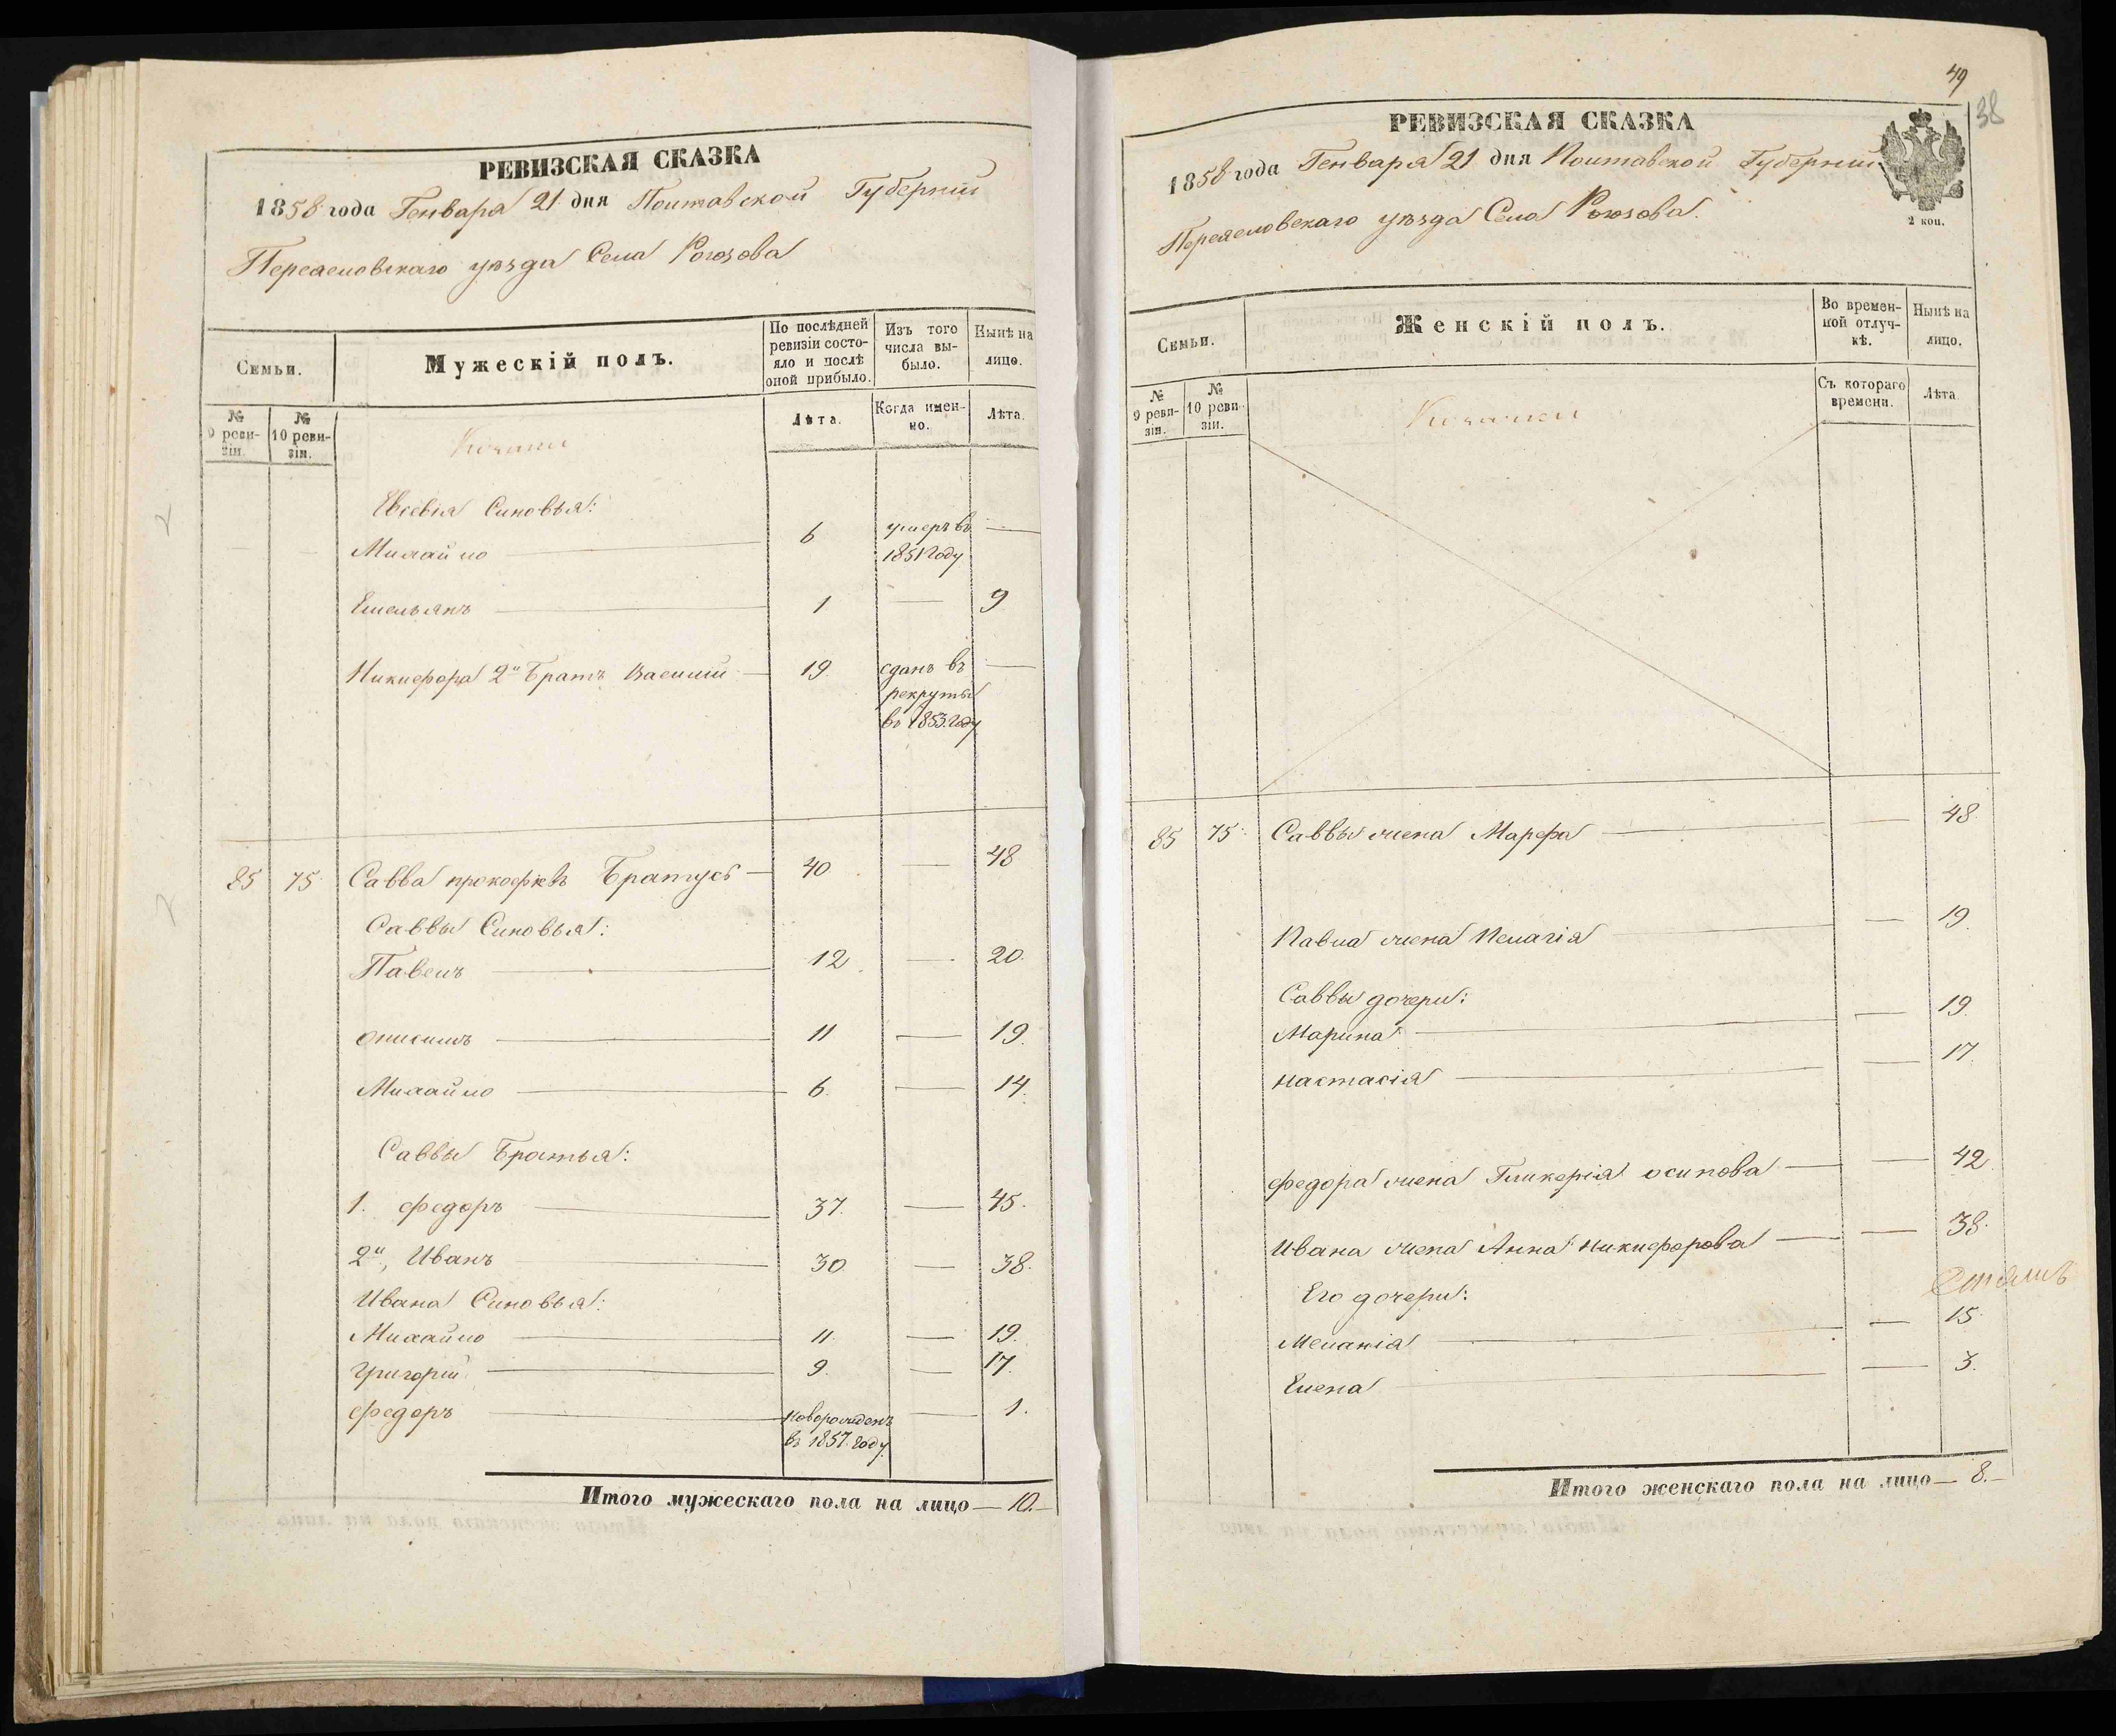 РЕВИЗСКАЯ СКАЗКА
1858 года Генваря 21 дня Полтавской Губернии
Переяславскаго уѣзда Села Рогозова
Семьи.
Мужескій полъ.
По послѣдней ревизіи состояло и послѣ оной прибыло.
Изъ того числа выбыло.
Нынѣ на лицо.
№ 9 ревизіи.
№ 10 ревизіи.
Лѣта.
Когда именно.
Лѣта.
Козаки
Евсевія Сыновья:
Михайло 6 умеръ въ 1851 Году
Емельянъ 1 9
Никифора 2й Братъ Василий 19. сданъ въ рекруты въ 1853. Году
85 75 Савва прокофіевъ Братусь 40 48
Саввы Сыновья:
Павелъ 12. 20.
онисимъ 11 19.
Михайло 6. 14.
Саввы Братья:
1. федоръ 37. 45.
2й, Иванъ 30. 38.
Ивана Сыновья:
Михайло 11. 19.
григорій 9. 17.
федоръ новорожденъ въ 1857. году 1.
Итого мужескаго пола на лицо — 10.
49
38
РЕВИЗСКАЯ СКАЗКА
1858 года Генваря 21 дня Полтавской Губернии
2 коп.
Переяславскаго уѣзда Села Рогозова.
Семьи.
Женскій полъ.
Во временной отлучкѣ.
Нынѣ на лицо.
№ 9 ревизіи.
№ 10 ревизіи.
Съ котораго времени.
Лѣта.
Козачки
85 75. Саввы жена Марфа 48.
Павла жена Пелагія 19.
Саввы дочери:
Марина 19.
настасія 17.
федора жена Гликерія осипова 42.
Ивана жена Анна никифорова 38.
Его дочери:
Меланія 15.
Елена 3.
Итого женскаго пола на лицо — 8.